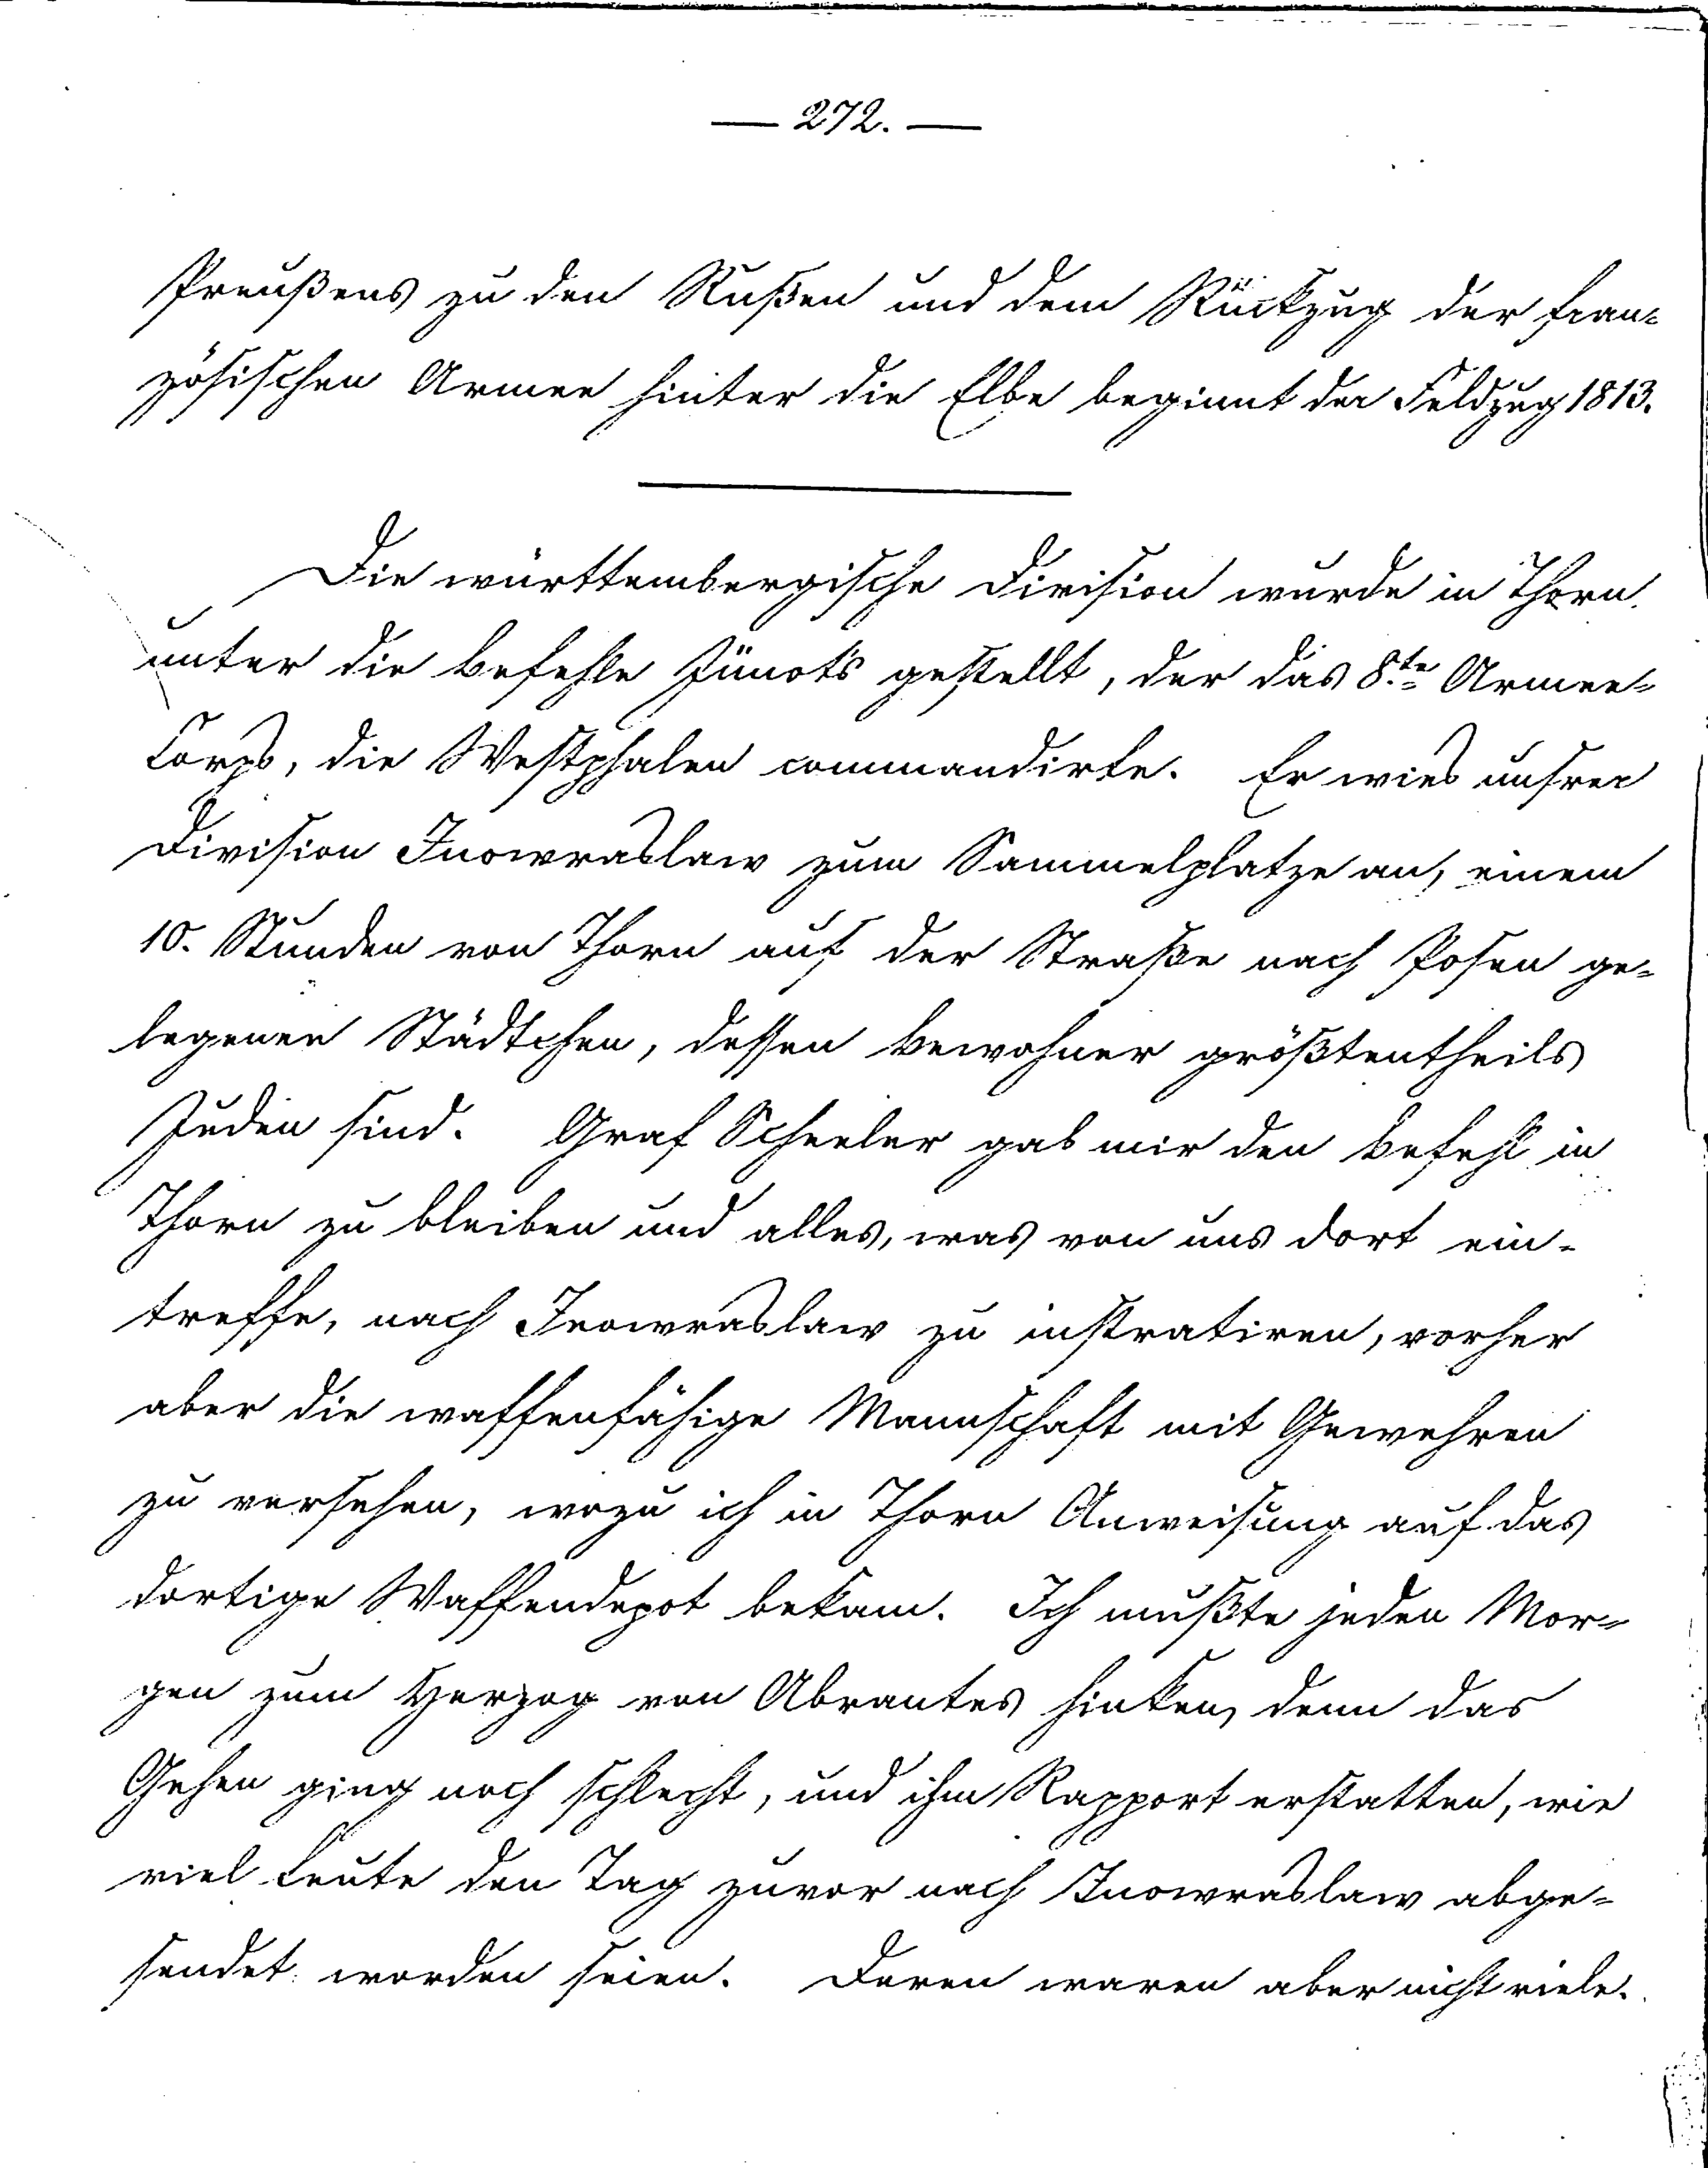 — 272. —
Preußens zu den Rußen und dem Rückzug der fran-
zösischen Armee hinter die Elbe beginnt der Feldzug 1813.
Die württembergische Division wurde in Thorn
unter die Befehle Jünot's gestellt, der das 8.te Armee-
Corps, die Westphalen commandirte. Er wies unsrer
Division Inowraslaw zum Sammelplatze an, einem
10. Stunden von Thorn auf der Straße nach Posen ge-
legenen Städtchen, dessen Bewohner größtentheils
Juden sind. Graf Scheeler gab mir den Befehl in
Thorn zu bleiben und alles, was von uns dort ein-
treffe, nach Inowraslaw zu instratiren, vorher
aber die waffenfähige Mannschaft mit Gewehren
zu versehen, wozu ich in Thorn Anweisung auf das
dortige Waffendepot bekam. Ich mußte jeden Mor-
gen zum Herzog von Abrantes hinken, denn das
Gehen ging noch schlecht, und ihm Rapport erstatten, wie
viel Leute den Tag zuvor nach Inowraslaw abge-
sendet worden seien. Deren waren aber nicht viele.